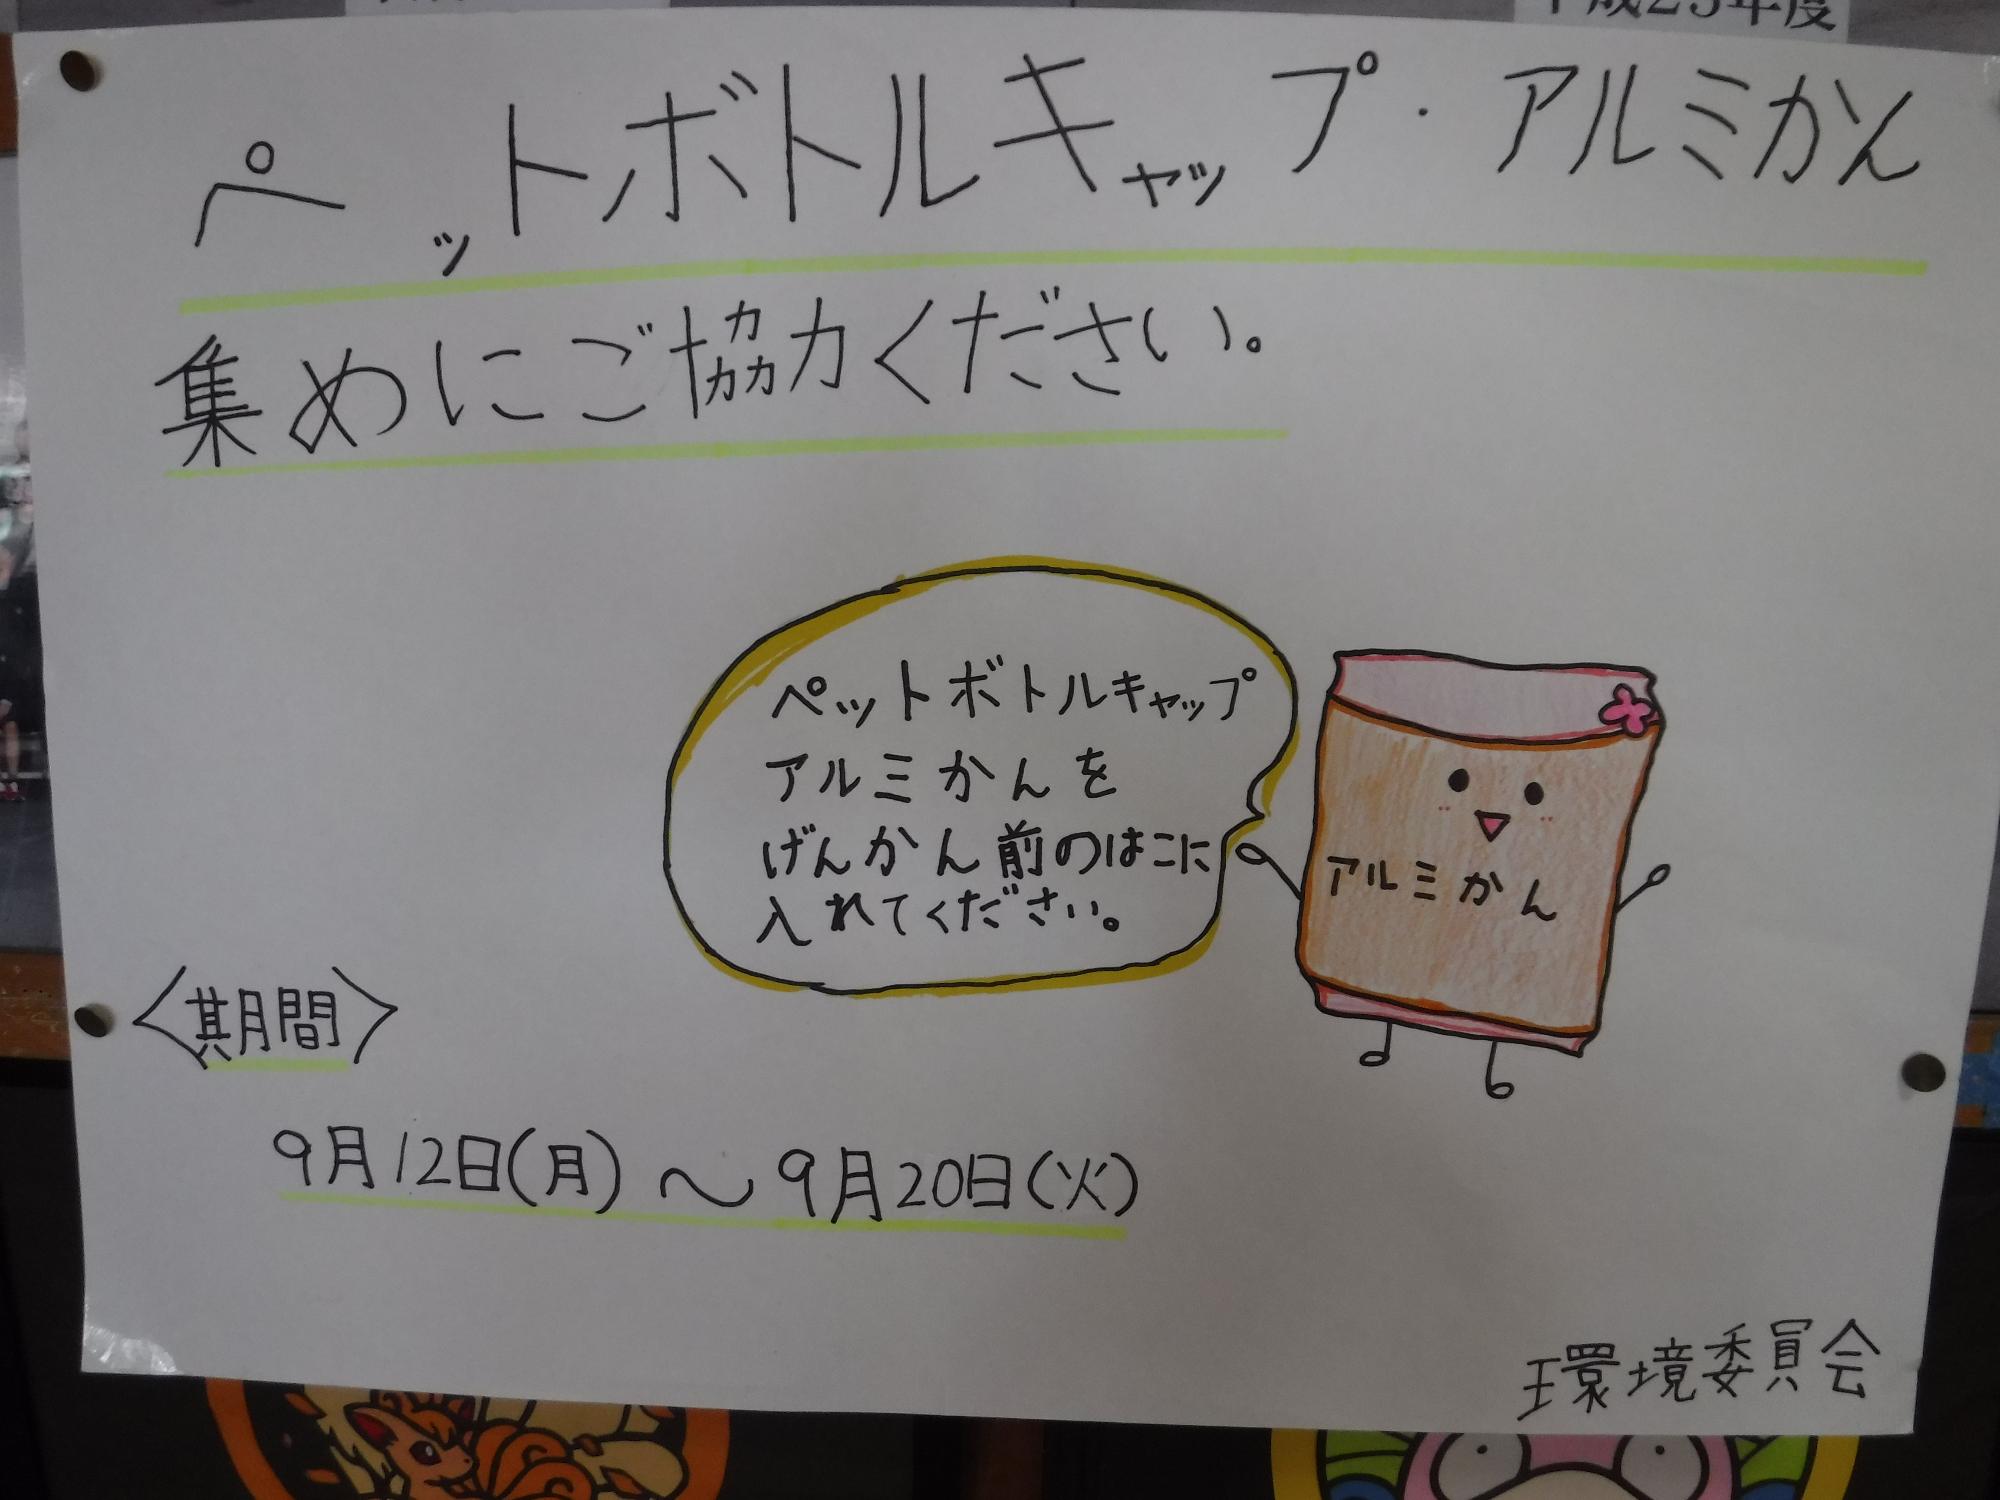 ペットボトルキャップ・アルミかん
集めにご協力ください。
ペットボトルキャップ
アルミかんを
げんかん前のはこに
入れてください。
アルミかん
〈期間〉
9月12日(月)～9月20日(火)
環境委員会